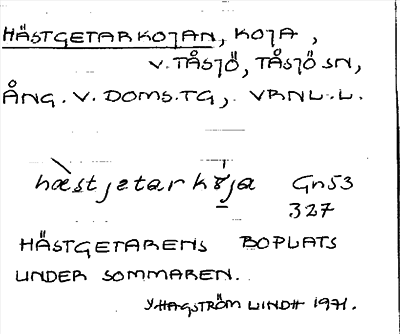 HÄSTGETARKOJAN, KOJA,
V. TÅSJÖ, TÅSJÖ SN,
ÅNG. V. DOMS.TG, VRNL.L.
hæstjetarkɤja Gn53
327
HÄSTGETARENS BOPLATS
UNDER SOMMAREN.
Y.HAGSTRÖM LINDH 1971.